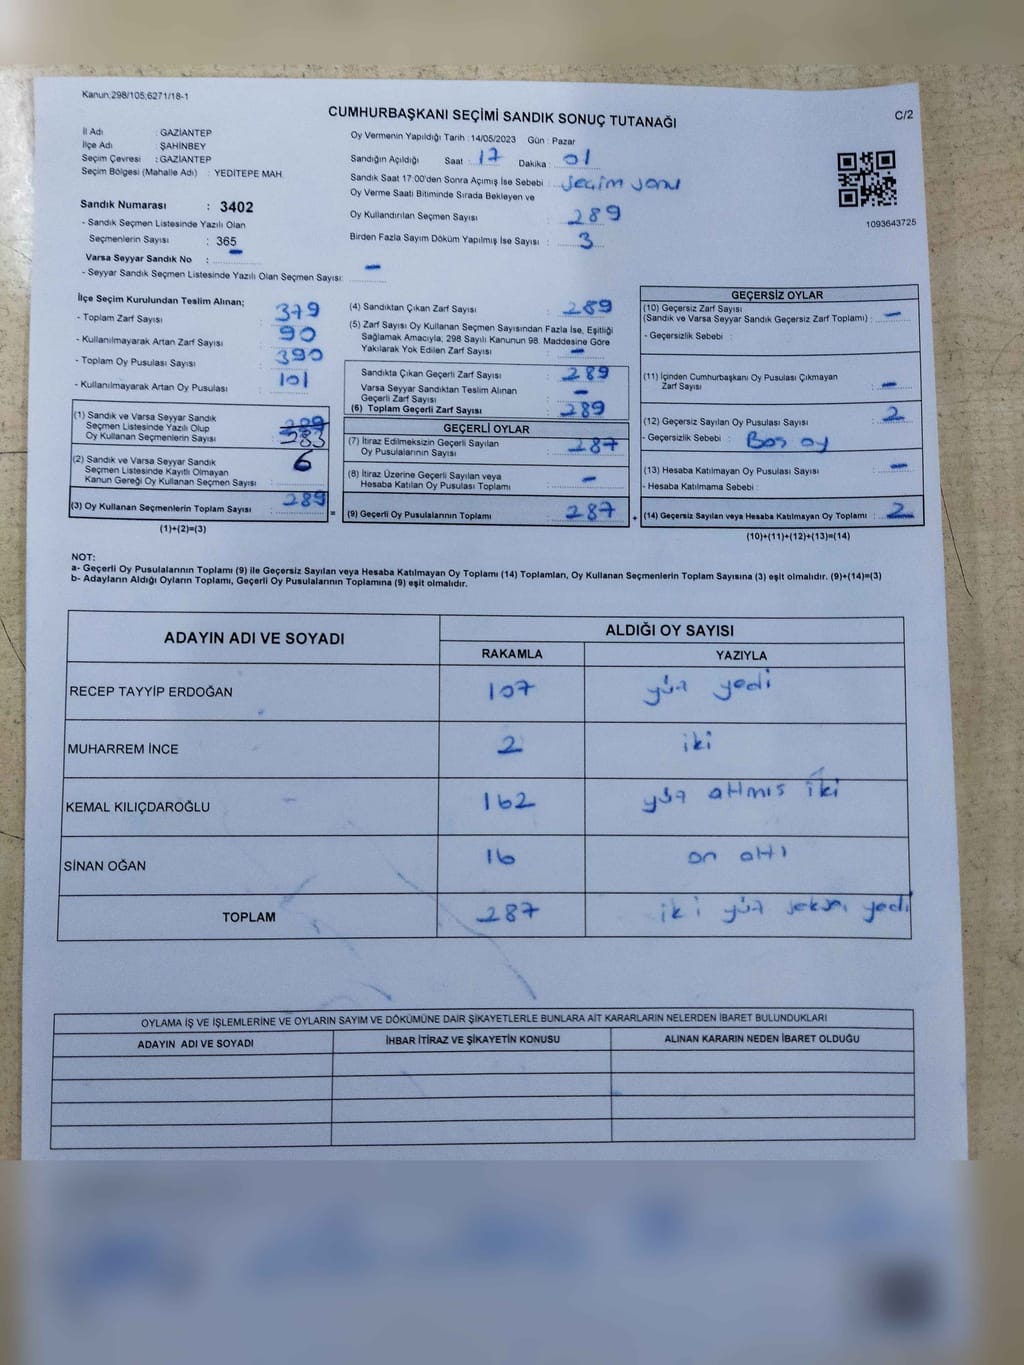 Kanun:298/105;6271/18-1
C/2
CUMHURBAŞKANI SEÇİMİ SANDIK SONUÇ TUTANAĞI
İl Adı : GAZİANTEP
İlçe Adı : ŞAHİNBEY
Seçim Çevresi : GAZİANTEP
Seçim Bölgesi (Mahalle Adı) : YEDİTEPE MAH.
Sandık Numarası : 3402
- Sandık Seçmen Listesinde Yazılı Olan
Seçmenlerin Sayısı : 365
Varsa Seyyar Sandık No : -
- Seyyar Sandık Seçmen Listesinde Yazılı Olan Seçmen Sayısı: -
Oy Vermenin Yapıldığı Tarih : 14/05/2023 Gün : Pazar
Sandığın Açıldığı Saat : 17 Dakika : 01
Sandık Saat 17:00'den Sonra Açımış İse Sebebi : seçim sonu
Oy Verme Saati Bitiminde Sırada Bekleyen ve
Oy Kullandırılan Seçmen Sayısı : 289
Birden Fazla Sayım Döküm Yapılmış İse Sayısı : 3
1093643725
İlçe Seçim Kurulundan Teslim Alınan;
- Toplam Zarf Sayısı : 379
- Kullanılmayarak Artan Zarf Sayısı : 90
- Toplam Oy Pusulası Sayısı : 390
- Kullanılmayarak Artan Oy Pusulası : 101
(1) Sandık ve Varsa Seyyar Sandık
Seçmen Listesinde Yazılı Olup
Oy Kullanan Seçmenlerin Sayısı : 289 283
(2) Sandık ve Varsa Seyyar Sandık
Seçmen Listesinde Kayıtlı Olmayan
Kanun Gereği Oy Kullanan Seçmen Sayısı : 6
(3) Oy Kullanan Seçmenlerin Toplam Sayısı : 289
(1)+(2)=(3)
=
(4) Sandıktan Çıkan Zarf Sayısı : 289
(5) Zarf Sayısı Oy Kullanan Seçmen Sayısından Fazla İse, Eşitliği
Sağlamak Amacıyla; 298 Sayılı Kanunun 98. Maddesine Göre
Yakılarak Yok Edilen Zarf Sayısı : -
Sandıkta Çıkan Geçerli Zarf Sayısı : 289
Varsa Seyyar Sandıktan Teslim Alınan
Geçerli Zarf Sayısı : -
(6) Toplam Geçerli Zarf Sayısı : 289
GEÇERLİ OYLAR
(7) İtiraz Edilmeksizin Geçerli Sayılan
Oy Pusulalarının Sayısı : 287
(8) İtiraz Üzerine Geçerli Sayılan veya
Hesaba Katılan Oy Pusulası Toplamı : -
(9) Geçerli Oy Pusulalarının Toplamı : 287
+
GEÇERSİZ OYLAR
(10) Geçersiz Zarf Sayısı
(Sandık ve Varsa Seyyar Sandık Geçersiz Zarf Toplamı) : -
- Geçersizlik Sebebi :
(11) İçinden Cumhurbaşkanı Oy Pusulası Çıkmayan
Zarf Sayısı : -
(12) Geçersiz Sayılan Oy Pusulası Sayısı : 2
- Geçersizlik Sebebi : Boş oy
(13) Hesaba Katılmayan Oy Pusulası Sayısı : -
- Hesaba Katılmama Sebebi :
(14) Geçersiz Sayılan veya Hesaba Katılmayan Oy Toplamı : 2
(10)+(11)+(12)+(13)=(14)
NOT:
a- Geçerli Oy Pusulalarının Toplamı (9) ile Geçersiz Sayılan veya Hesaba Katılmayan Oy Toplamı (14) Toplamları, Oy Kullanan Seçmenlerin Toplam Sayısına (3) eşit olmalıdır. (9)+(14)=(3)
b- Adayların Aldığı Oyların Toplamı, Geçerli Oy Pusulalarının Toplamına (9) eşit olmalıdır.
ADAYIN ADI VE SOYADI ALDIĞI OY SAYISI
RAKAMLA YAZIYLA
RECEP TAYYİP ERDOĞAN 107 yüz yedi
MUHARREM İNCE 2 iki
KEMAL KILIÇDAROĞLU 162 yüz atmış iki
SİNAN OĞAN 16 on altı
TOPLAM 287 iki yüz seksen yedi
OYLAMA İŞ VE İŞLEMLERİNE VE OYLARIN SAYIM VE DÖKÜMÜNE DAİR ŞİKAYETLERLE BUNLARA AİT KARARLARIN NELERDEN İBARET BULUNDUKLARI
ADAYIN ADI VE SOYADI İHBAR İTİRAZ VE ŞİKAYETİN KONUSU ALINAN KARARIN NEDEN İBARET OLDUĞU